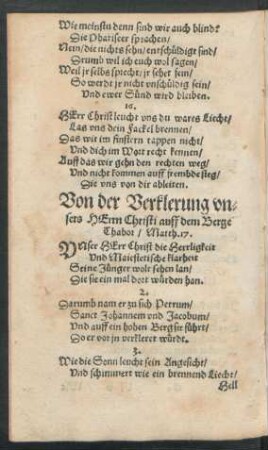 Wie meinstu denn sind wir auch blind?
Die Phariseer sprachen/
Nein/die nichts sehn/entschüldigt sind/
Drumb wil ich euch wol sagen/
Weil jr selbs sprecht/jr sehet fein/
So werdt jr nicht vnschüldig sein/
Vnd ewer Sünd wird bleiben.
10.
HErr Christ leucht vns du wares Liecht/
Las vns dein Fackel brennen/
Das wir im finstern tappen nicht/
Vnd dich im Wort recht kennen/
Auff das wir gehn den rechten weg/
Vnd nicht kommen auff frembde steg/
Die vns von dir ableiten.
Von der Verklerung vn-
sers HErrn Christi auff dem Berge
Thabor / Matth.17.
VNser HErr Christ die Herrligkeit
Vnd Maiestetische klarheit
Seine Jünger wolt sehen lan/
Die sie ein mal dort würden han.
2.
Darumb nam er zu sich Petrum/
Sanct Johannem vnd Jacobum/
Vnd auff ein hohen Berg sie führt/
Do er vor jn verkleret würdt.
3.
Wie die Sonn leucht sein Angesicht/
Vnd schimmert wie ein brennend Liecht/
Hell